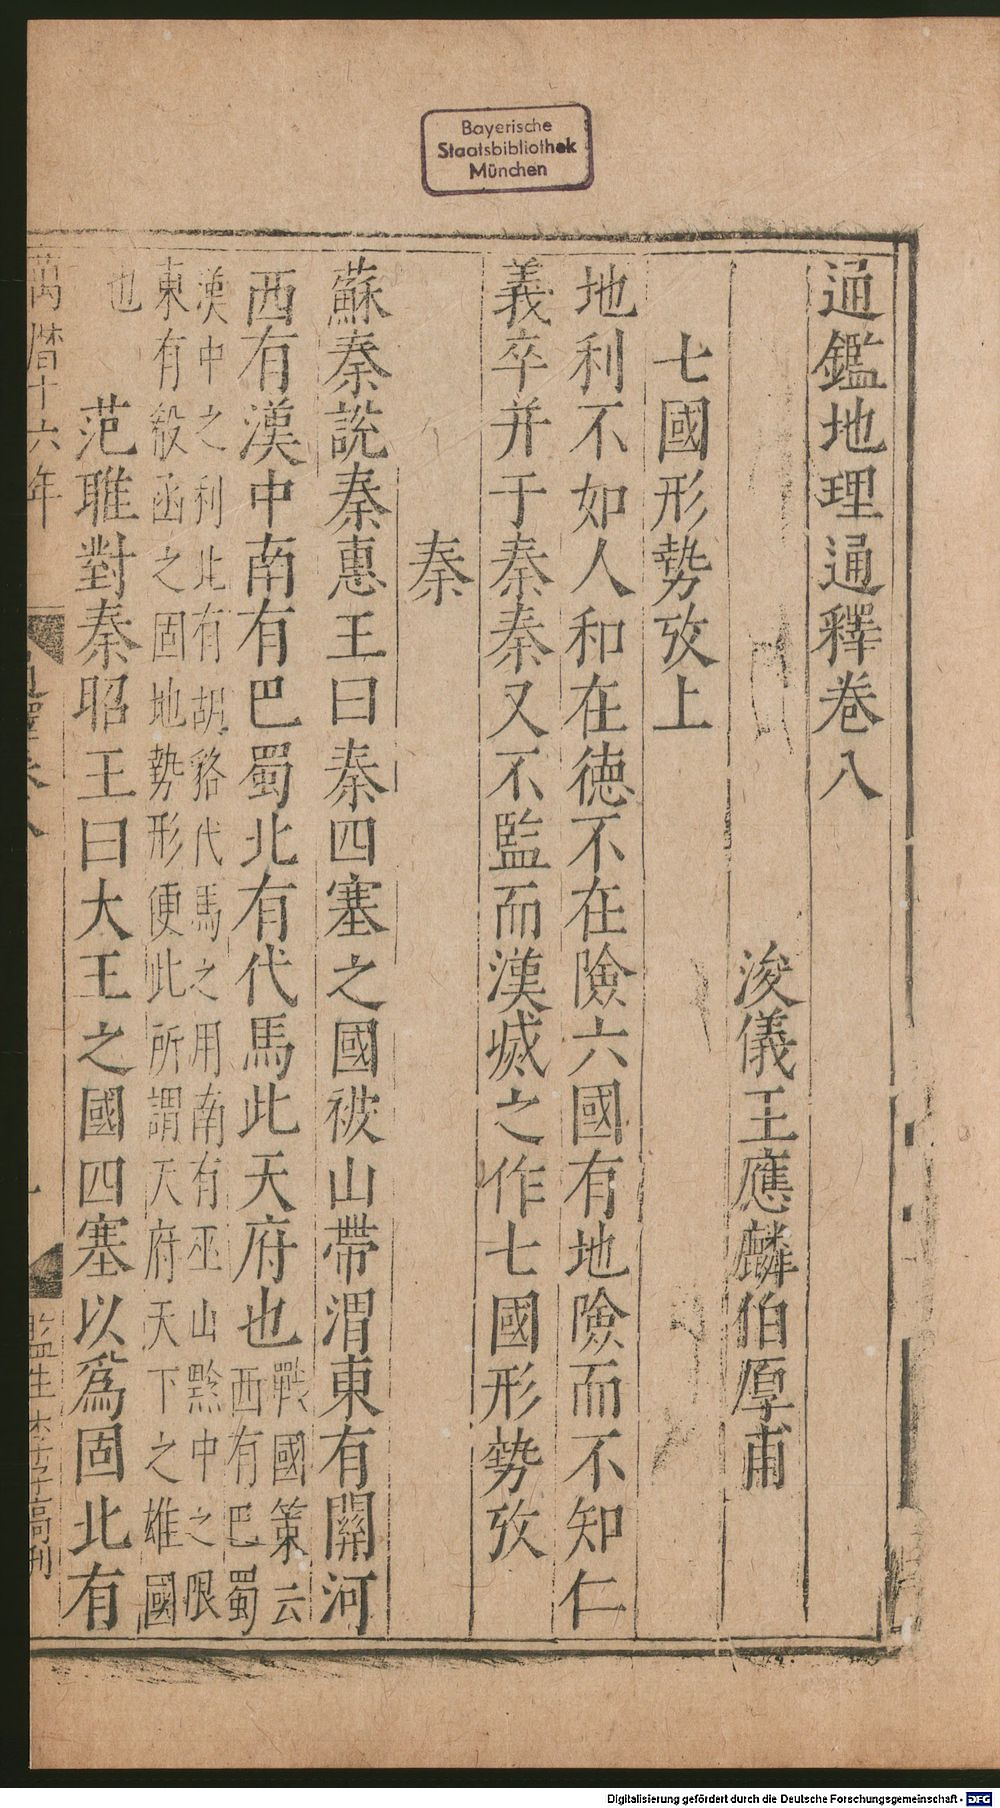 Bayerische
Staatsbibliothek
München
通鑑地理通釋卷八
浚儀王應麟伯厚甫
七國形勢攷上
地利不如人和在德不在險六國有地險而不知仁
義卒并于秦秦又不監而漢烕之作七國形勢攷
秦
蘇秦說秦惠王曰秦四塞之國被山帶渭東有關河
西有漢中南有巴蜀北有代馬此天府也
戰國策云
西有巴蜀
漢中之利北有胡貉代馬之用南有巫山黔中之限
東有殽函之固地勢形便此所謂天府天下之雄國
也
范雎對秦昭王曰大王之國四塞以爲固北有
萬曆十六年
通釋卷八
一
監生
刊
Digitalisierung gefördert durch die Deutsche Forschungsgemeinschaft - DFG